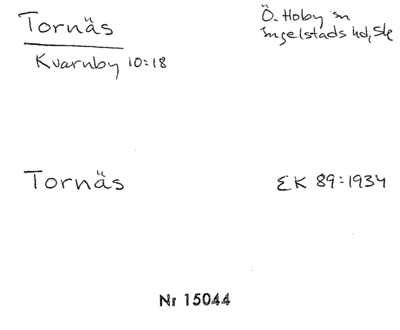 Tornäs
Ö. Hoby sn
Ingelstads hd, Sk
Kvarnby 10:18
Tornäs
EK 89:1934
Nr 15044